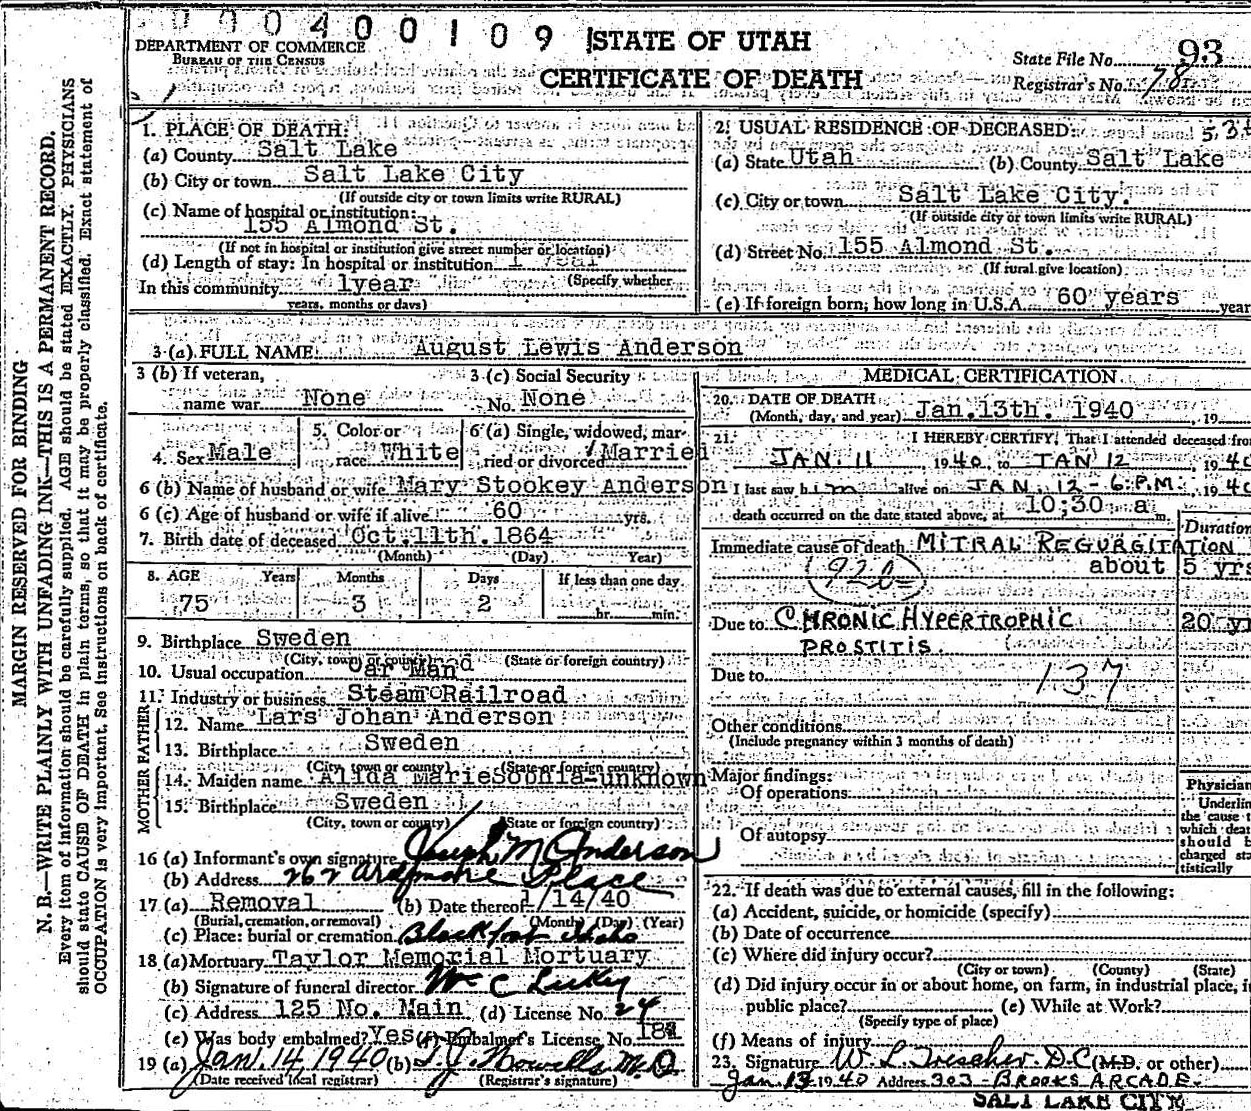 000400109
STATE OF UTAH
DEPARTMENT OF COMMERCE
BUREAU OF THE CENSUS
CERTIFICATE OF DEATH
State File No. 93
Registrar's No. 78
MARGIN RESERVED FOR BINDING
N. B.—WRITE PLAINLY WITH UNFADING INK—THIS IS A PERMANENT RECORD.
Every item of information should be carefully supplied. AGE should be stated EXACTLY. PHYSICIANS
should state CAUSE OF DEATH in plain terms, so that it may be properly classified. Exact statement of
OCCUPATION is very important. See instructions on back of certificate.
1. PLACE OF DEATH:
(a) County Salt Lake
(b) City or town Salt Lake City
(If outside city or town limits write RURAL)
(c) Name of hospital or institution:
155 Almond St.
(If not in hospital or institution give street number or location)
(d) Length of stay: In hospital or institution
(Specify whether
In this community 1year
years, months or days)
2. USUAL RESIDENCE OF DECEASED:
(a) State Utah (b) County Salt Lake
(c) City or town Salt Lake City.
(If outside city or town limits write RURAL)
(d) Street No. 155 Almond St.
(If rural give location)
(e) If foreign born, how long in U.S.A. 60 years year
3 (a) FULL NAME August Lewis Anderson
3 (b) If veteran,
name war None
3 (c) Social Security
No. None
4. Sex Male
5. Color or
race White
6 (a) Single, widowed, mar-
ried or divorced Married
6 (b) Name of husband or wife Mary Stookey Anderson
6 (c) Age of husband or wife if alive 60 yrs.
7. Birth date of deceased Oct. 11th. 1864
(Month) (Day) Year)
8. AGE Years Months Days If less than one day
75 3 2 hr. min.
9. Birthplace Sweden
(City, town or county) (State or foreign country)
10. Usual occupation Car Man
11. Industry or business Steam Railroad
FATHER
12. Name Lars Johan Anderson
13. Birthplace Sweden
(City, town or county) (State or foreign country)
MOTHER
14. Maiden name Alida Marie Sophia-unknown
15. Birthplace Sweden
(City, town or county) (State or foreign country)
16 (a) Informant's own signature Joseph M Anderson
(b) Address 262 Ardmore Place
17 (a) Removal (b) Date thereof 1/14/40
(Burial, cremation, or removal) (Month) (Day) (Year)
(c) Place: burial or cremation Blackfoot Idaho
18 (a) Mortuary Taylor Memorial Mortuary
(b) Signature of funeral director
(c) Address 125 No. Main (d) License No. 24
(e) Was body embalmed? Yes (f) Embalmer's License No.
19 (a) Jan. 14, 1940 (b) T. J. Howells M.D.
(Date received local registrar) (Registrar's signature)
MEDICAL CERTIFICATION
20. DATE OF DEATH
(Month, day, and year) Jan. 13th. 1940, 19
21. I HEREBY CERTIFY, That I attended deceased from
JAN. 11 1940, to JAN 12, 1940
I last saw him alive on JAN. 12 - 6 P.M., 1940
death occurred on the date stated above, at 10:30 a m.
Duration
Immediate cause of death MITRAL REGURGITATION
about 5 yrs
92b
Due to CHRONIC HYPERTROPHIC 20 yr
PROSTITIS.
Due to 137
Other conditions
(Include pregnancy within 3 months of death)
Major findings:
Of operations
Of autopsy
Physician
Underlin
the cause t
which deat
should b
charged sta
tistically
22. If death was due to external causes, fill in the following:
(a) Accident, suicide, or homicide (specify)
(b) Date of occurrence
(c) Where did injury occur?
(City or town) (County) (State)
(d) Did injury occur in or about home, on farm, in industrial place, in
public place? (e) While at Work?
(Specify type of place)
(f) Means of injury
23. Signature W. L. Trescher D.C. (M.D. or other)
Jan. 13, 1940 Address 303 - BROOKS ARCADE
SALT LAKE CITY